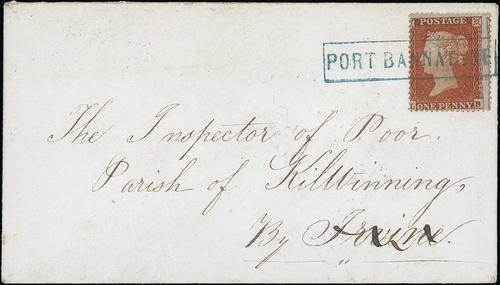 POSTAGE
PORT BANNATYNE
ONE PENNY
The Inspector of Poor.
Parish of Kilwinning,
By Irvine.